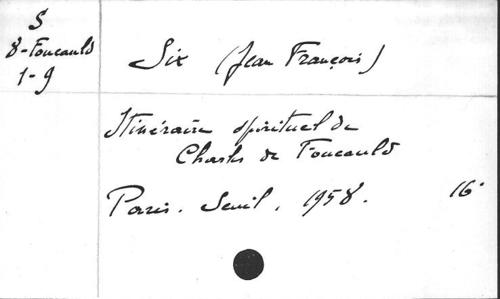 S
8-Foucauld
1-9
Six (Jean François)
Itinéraire spirituel de
Charles de Foucauld
Paris. Seuil, 1958. 16°